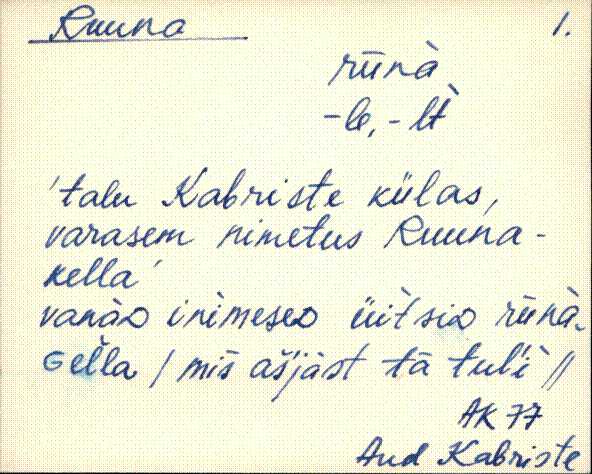 Ruuna 1.
rūnà
-le, -lt̀
'talu Kabriste külas,
varasem nimetus Ruuna-
kella'
vanàᴅ inìmeseᴅ üitsiᴅ rūnà-
Gella / mis ašjàst tā tul'ì //
AK 77
And Kabriste